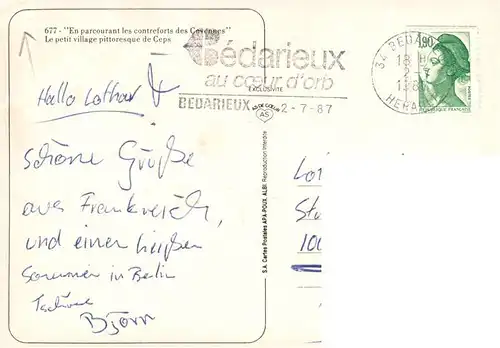 677 - "En parcourant les contreforts des Cevennes"
Le petit village pittoresque de Ceps
Bédarieux
au cœur d'orb
BEDARIEUX 2-7-87
EXCLUSIVITE
AS DE CŒUR
AS
34 BEDA
18 H
2-
198
HERA
1,90
FRANÇAISE
Hallo Lothar
schöne Grüße
aus Frankreich,
und einen heißen
Sommer in Berlin
Tschüss
Björn
S.A. Cartes Postales APA-POUX, ALBI Reproduction Interdite
Lot
Stu
100